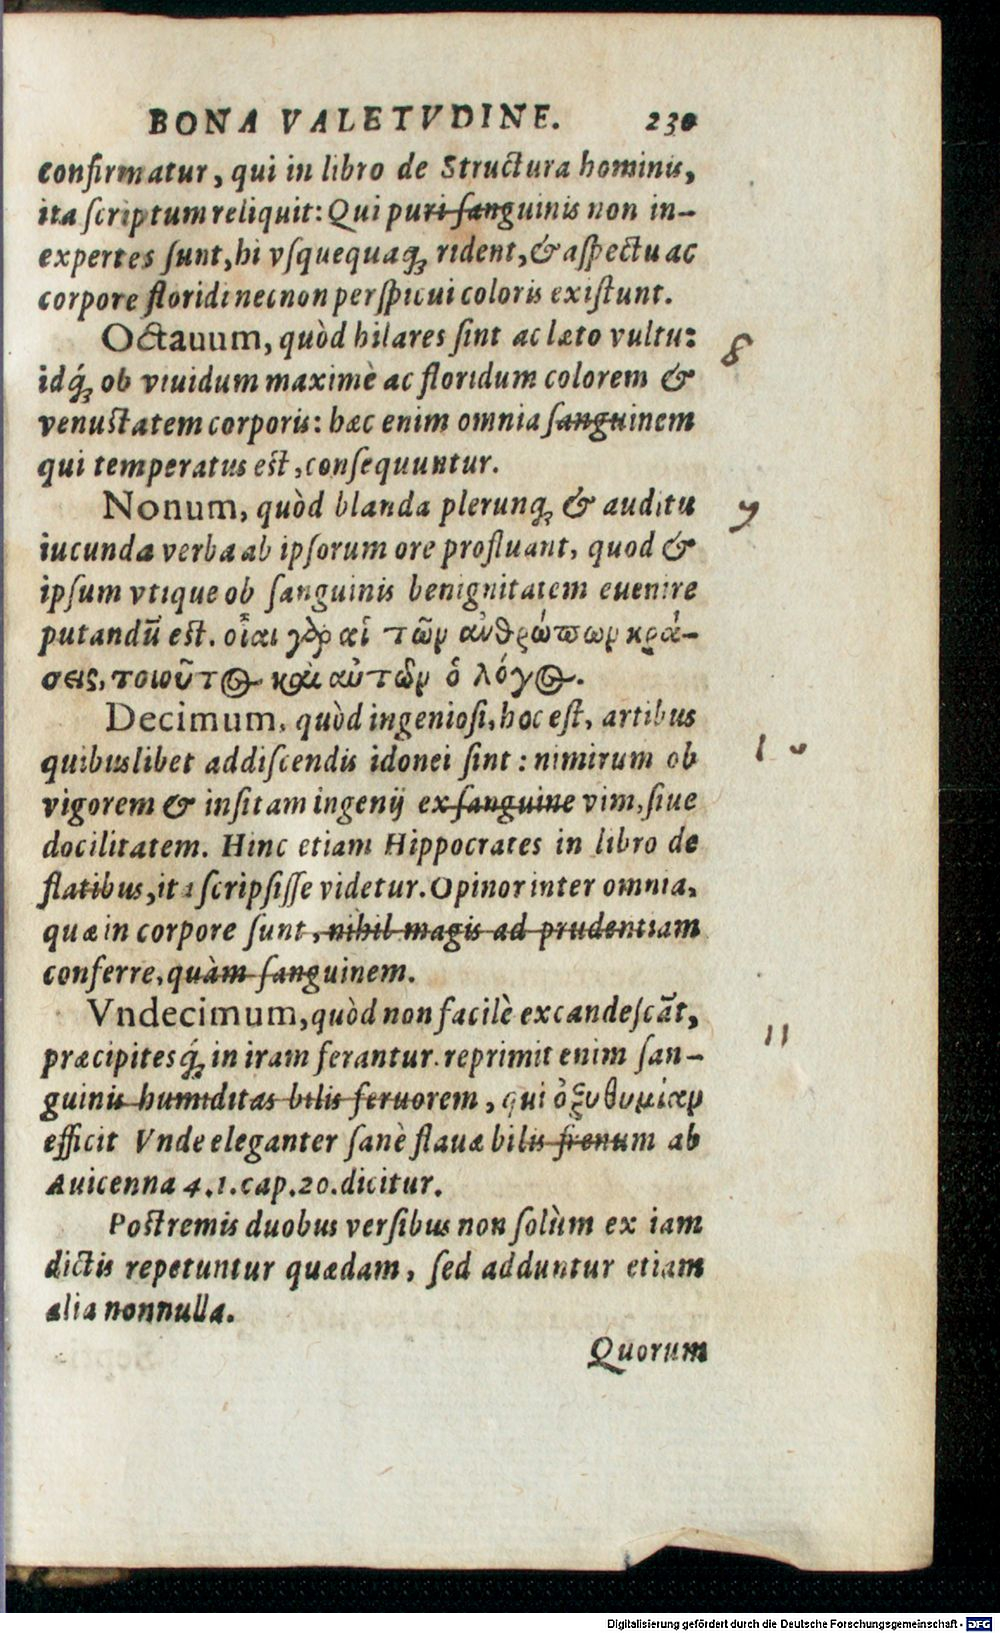 BONA VALETVDINE. 230
confirmatur, qui in libro de Structura hominis,
ita scriptum reliquit: Qui puri sanguinis non in-
expertes sunt, hi vsquequaq; rident, & aspectu ac
corpore floridi necnon perspicui coloris existunt.
Octauum, quòd hilares sint ac læto vultu: 8
idq́; ob viuidum maximè ac floridum colorem &
venustatem corporis: hæc enim omnia sanguinem
qui temperatus est, consequuntur.
Nonum, quòd blanda plerunq; & auditu 9
iucunda verba ab ipsorum ore profluant, quod &
ipsum vtique ob sanguinis benignitatem euenire
putandũ est. οἷαι γὸρ αἱ τῶν ἀνθρώπων κρά-
σεις, τοιοῦτος καὶ αὐτῶν ὁ λόγος.
Decimum, quòd ingeniosi, hoc est, artibus
quibuslibet addiscendis idonei sint: nimirum ob 10
vigorem & insitam ingenij ex sanguine vim, siue
docilitatem. Hinc etiam Hippocrates in libro de
flatibus, ita scripsisse videtur. Opinor inter omnia,
quæ in corpore sunt, nihil magis ad prudentiam
conferre, quàm sanguinem.
Vndecimum, quòd non facilè excandescãt,
præcipitesq́; in iram ferantur. reprimit enim san- 11
guinis humiditas bilis feruorem, qui ὀξυθυμίαν
efficit Vnde eleganter sanè flauæ bilis frenum ab
Auicenna 4.1.cap.20.dicitur.
Postremis duobus versibus non solùm ex iam
dictis repetuntur quædam, sed adduntur etiam
alia nonnulla.
Quorum
Digitalisierung gefördert durch die Deutsche Forschungsgemeinschaft - DFG